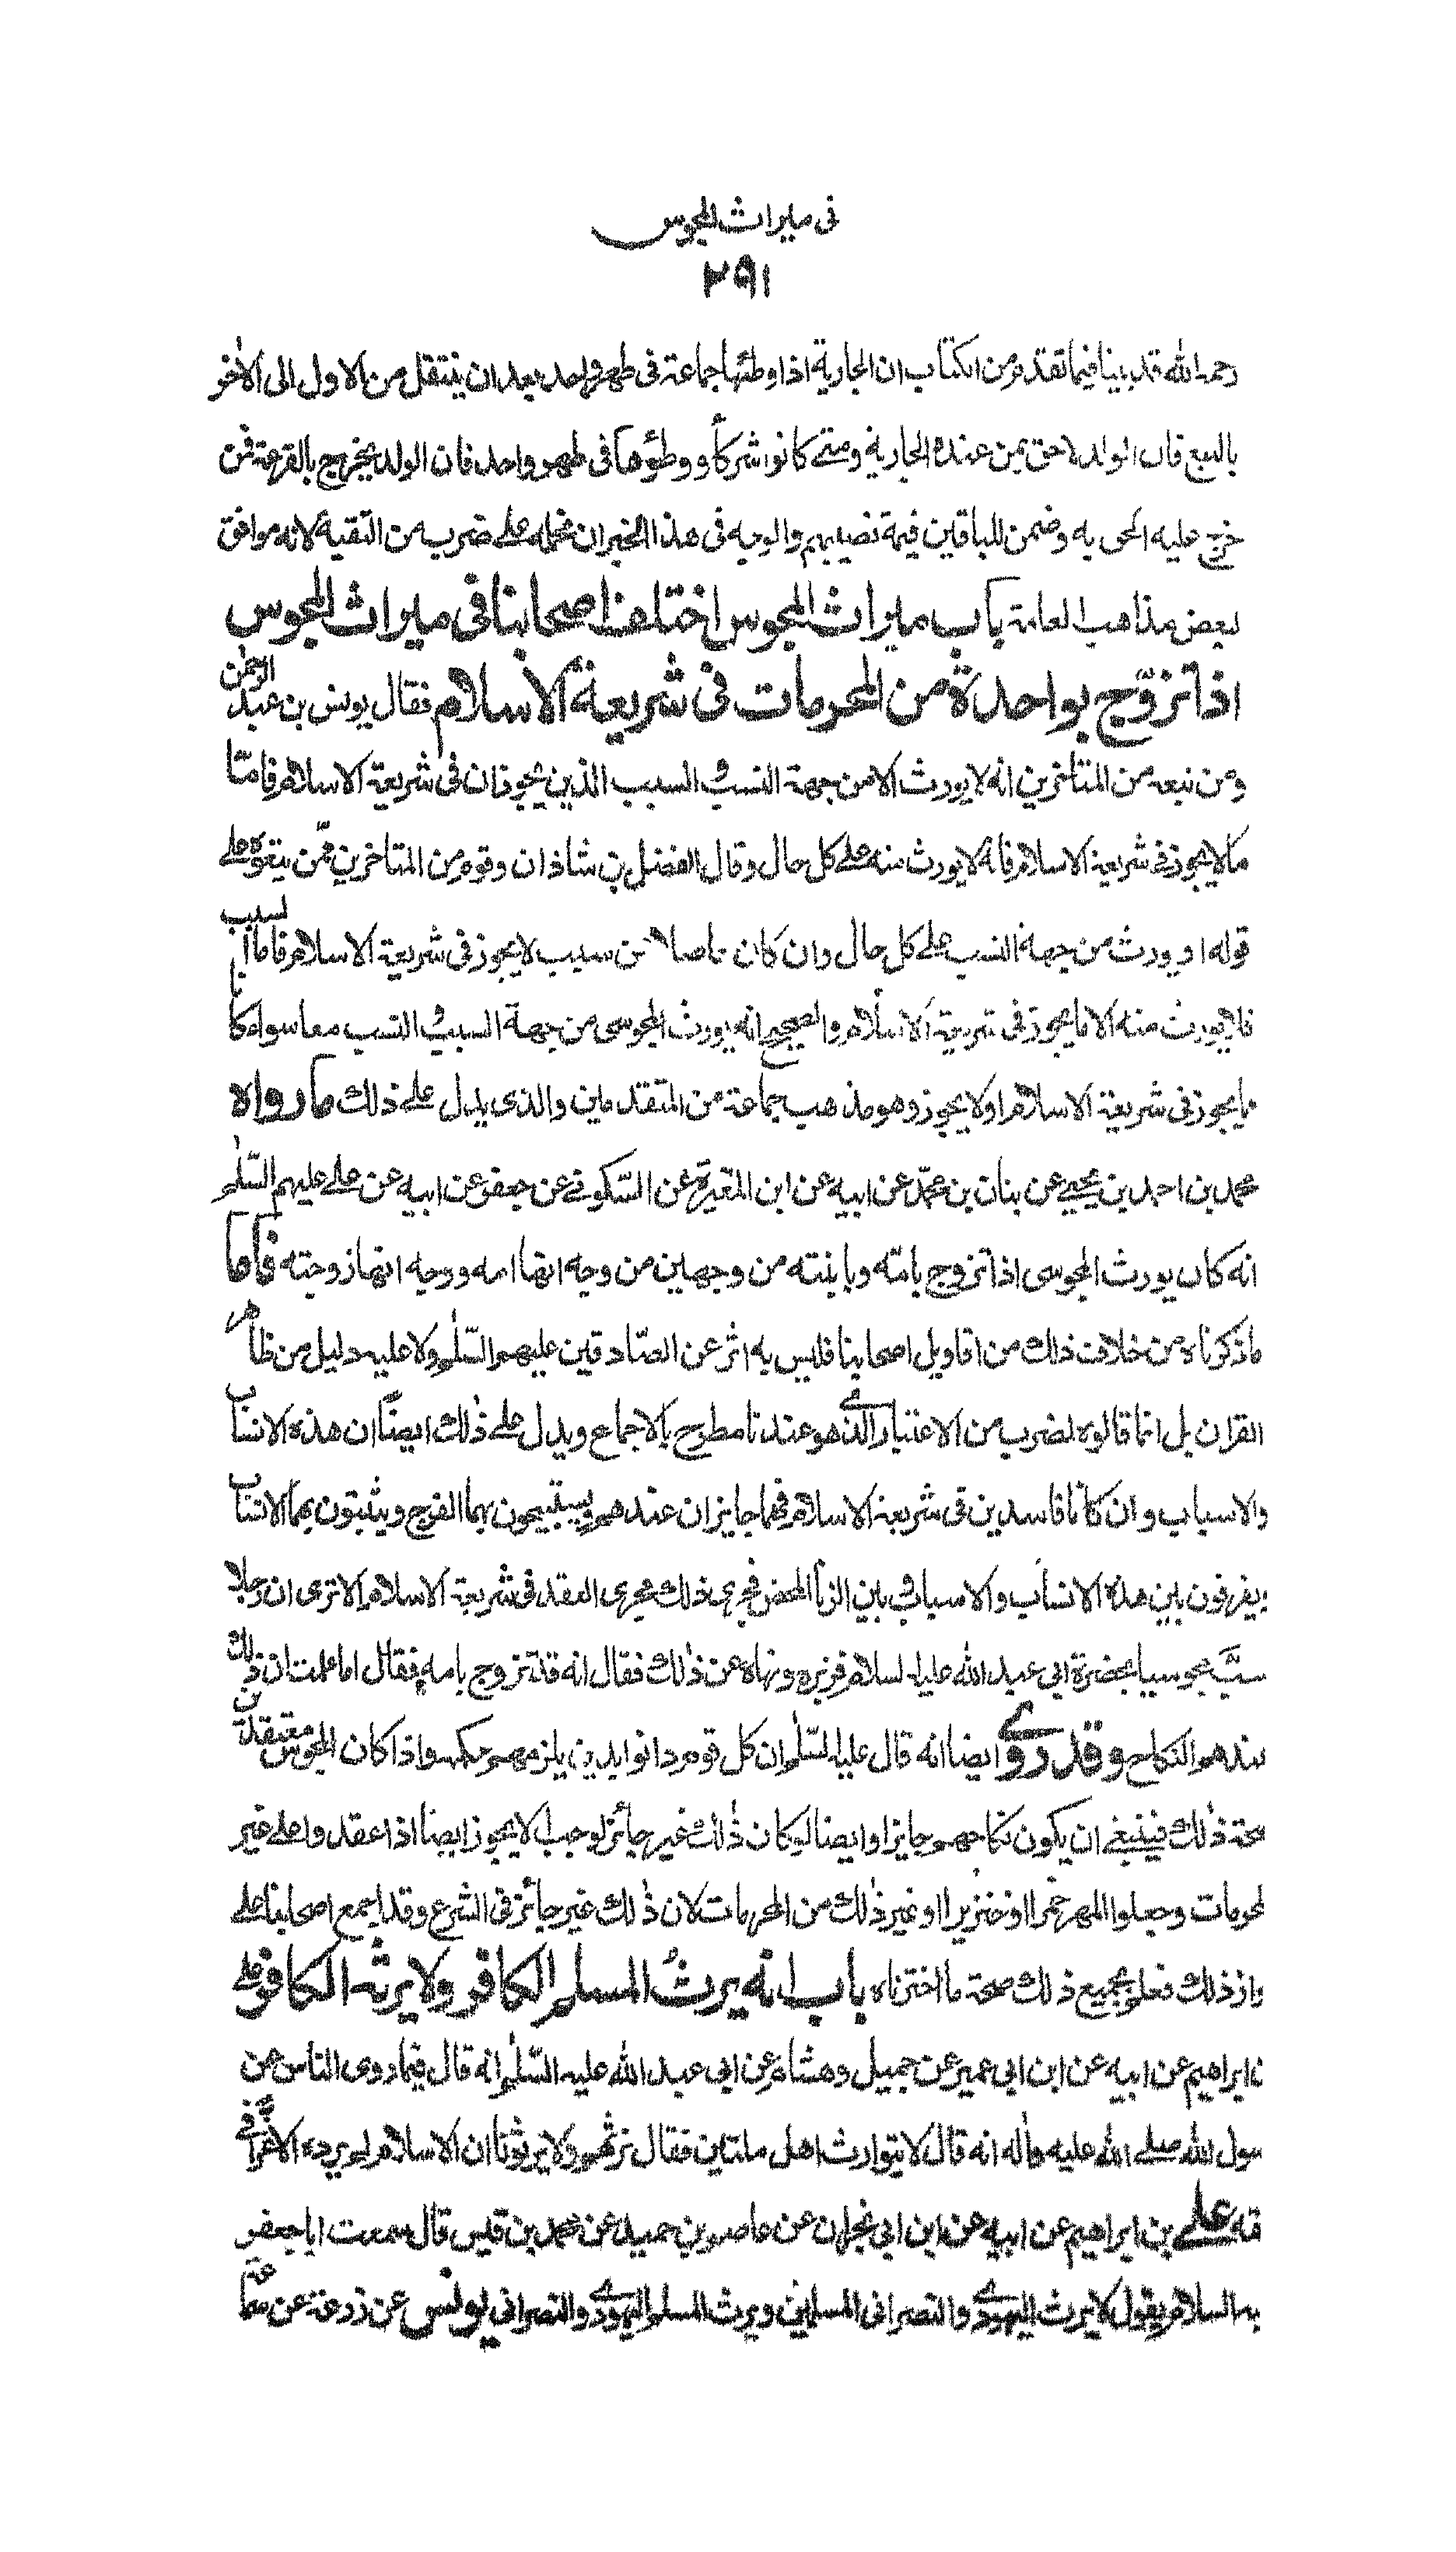 فى ميراث المجوس
٢٩١
رحمه الله قد بينا فيما تقدم من الكتاب ان الجارية اذا وطئها جماعة فى طهر واحد بعد ان ينتقل من الاول الى الاخر
بالبيع فان الولد لاحق بمن عنده الجارية ومتى كانوا شركاء و وطؤها فى طهر واحد فان الولد يخرج بالقرعة فمن
خرج عليه الحق به وضمن للباقين قيمة نصيبهم والوجه فى هذا الخبر ان نحمله على ضرب من التقية لانه موافق
لبعض مذاهب العامة باب ميراث المجوس اختلف اصحابنا فى ميراث المجوس
اذا تزوّج بواحدة من المحرمات فى شريعة الاسلام فقال يونس بن عبد الرحمٰن
ومن تبعه من المتاخرين انه لا يورث الا من جهة النسب و السبب الذين يجوزان فى شريعة الاسلام فاما
ما لا يجوز فى شريعة الاسلام فانه لا يورث منه على كل حال وقال الفضل بن شاذان وقوم من المتاخرين ممّن يتبعوه على
قوله انه يورث من جهة النسب على كل حال وان كان حاصلا عن سبب لا يجوز فى شريعة الاسلام فاما السبب
فلا يورث منه الا ما يجوز فى شريعة الاسلام والصحيح انه يورث المجوسى من جهة السبب و النسب معا سواء كانا
مما يجوز فى شريعة الاسلام او لا يجوز وهو مذهب جماعة من المتقدمين والذى يدل على ذلك ما رواه
محمد بن احمد بن يحيى عن بنان بن محمّد عن ابيه عن ابن المغيرة عن السّكونى عن جعفر عن ابيه عن على عليهم السّلٰم
انه كان يورث المجوسى اذا تزوج بامّه وبابنته من وجهين من وجه انها امه ووجه انها زوجته فاما
ما ذكرناه من خلاف ذلك من اقاويل اصحابنا فليس به اثر عن الصّادقين عليهم السّلٰم ولا عليه دليل من ظاهر
القران بل انما قالوه لضرب من الاعتبار الذى هو عندنا مطرح بالاجماع ويدل على ذلك ايضًا ان هذه الانساب
والاسباب و ان كانا فاسدين فى شريعة الاسلام فهما جايزان عندهم ويستبيحون بهما الفرج ويثبتون بهما الانساب
ويفرقون بين هذه الانساب والاسباب و بين الزنا المحض فجرى ذلك مجرى العقد فى شريعة الاسلام الا ترى ان رجلا
سبَّ مجوسيا بحضرة ابى عبد الله عليه السلام فزبره ونهاه عن ذلك فقال انه قد تزوج بامه فقال اما علمت ان ذلك
عندهم النكاح وقد روى ايضا انه قال عليه السّلٰم ان كل قوم دانوا بدين يلزمهم حكمه واذا كان المجوس معتقدين
صحة ذلك فينبغى ان يكون نكاحهم جايزا وايضا لو كان ذلك غير جائز لوجب الا يجوز ايضا اذا عقدوا على غير
المحرمات وجعلوا المهر خمرا او خنزيرا او غير ذلك من المحرمات لان ذلك غير جائز فى الشرع وقد اجمع اصحابنا على
جواز ذلك فعلم بجميع ذلك صحة ما اخترناه باب انه يرث المسلم الكافر ولا يرثه الكافر على
بن ابراهيم عن ابيه عن ابن ابى عمير عن جميل وهشام عن ابى عبد الله عليه السّلٰم انه قال فيما روى الناس عن
رسول الله صلى الله عليه واله انه قال لا يتوارث اهل ملتين فقال نرثهم ولا يرثونا ان الاسلام لم يزده الا عزّا فى
حقه على بن ابراهيم عن ابيه عن ابن ابى نجران عن عاصم بن حميد عن محمد بن قيس قال سمعت ابا جعفر
عليه السلام يقول لا يرث اليهودى والنصرانى المسلمين ويرث المسلم اليهودى والنصرانى يونس عن زرعة عن سماعة